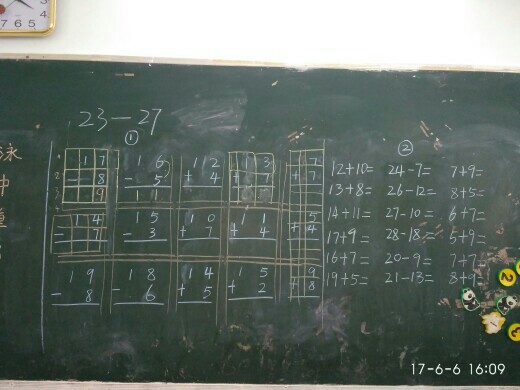 23—27
① ②
17 16 12 13 7
- 8 - 5 + 4 + 7 + 7
9 11
14 15 10 11 5
- 7 - 3 + 7 + 4 + 4
19 18 14 15 9
- 8 - 6 + 5 + 2 + 8
12+10= 24-7= 7+9=
13+8= 26-12= 8+5=
14+11= 27-10= 6+7=
17+9= 28-18= 5+9=
16+7= 20-9= 7+7=
19+5= 21-13= 8+9=
17-6-6 16:09